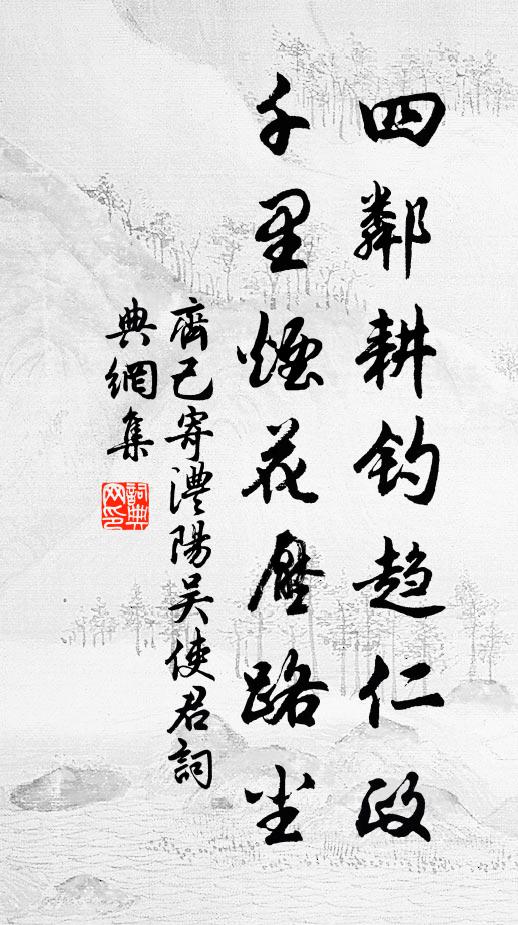 四鄰耕釣趨仁政
千里煙花壓路尘
齊己寄澧陽吴使君詞
典網集
詞典
网印